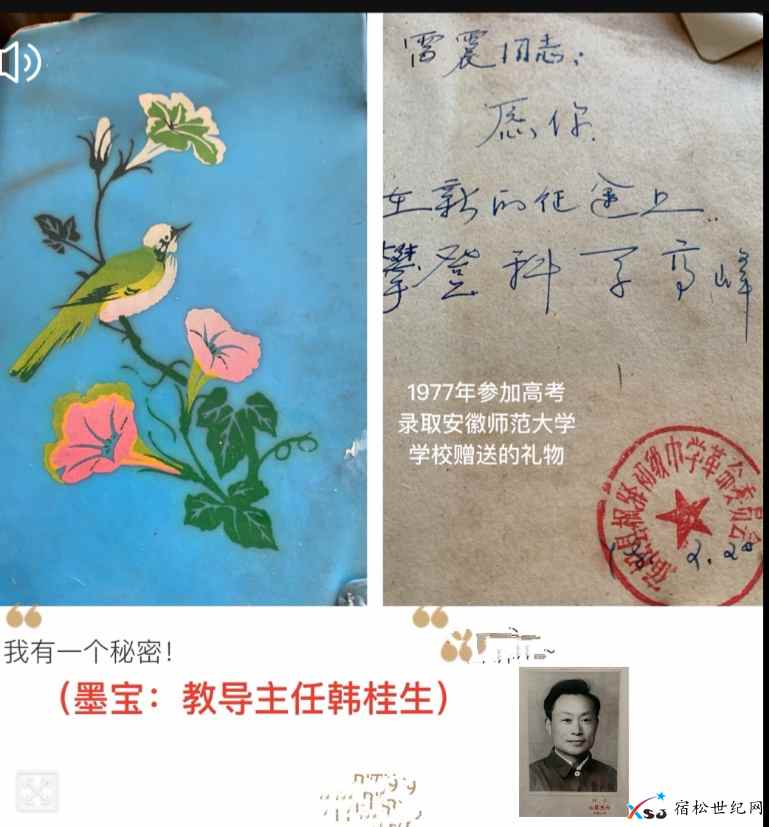 雷震同志：
愿你
在新的征途上
攀登科学高峰
1977年参加高考
录取安徽师范大学
学校赠送的礼物
初级中学革命委员会
2.20
我有一个秘密！
（墨宝：教导主任韩桂生）
XSJ 宿松世纪网